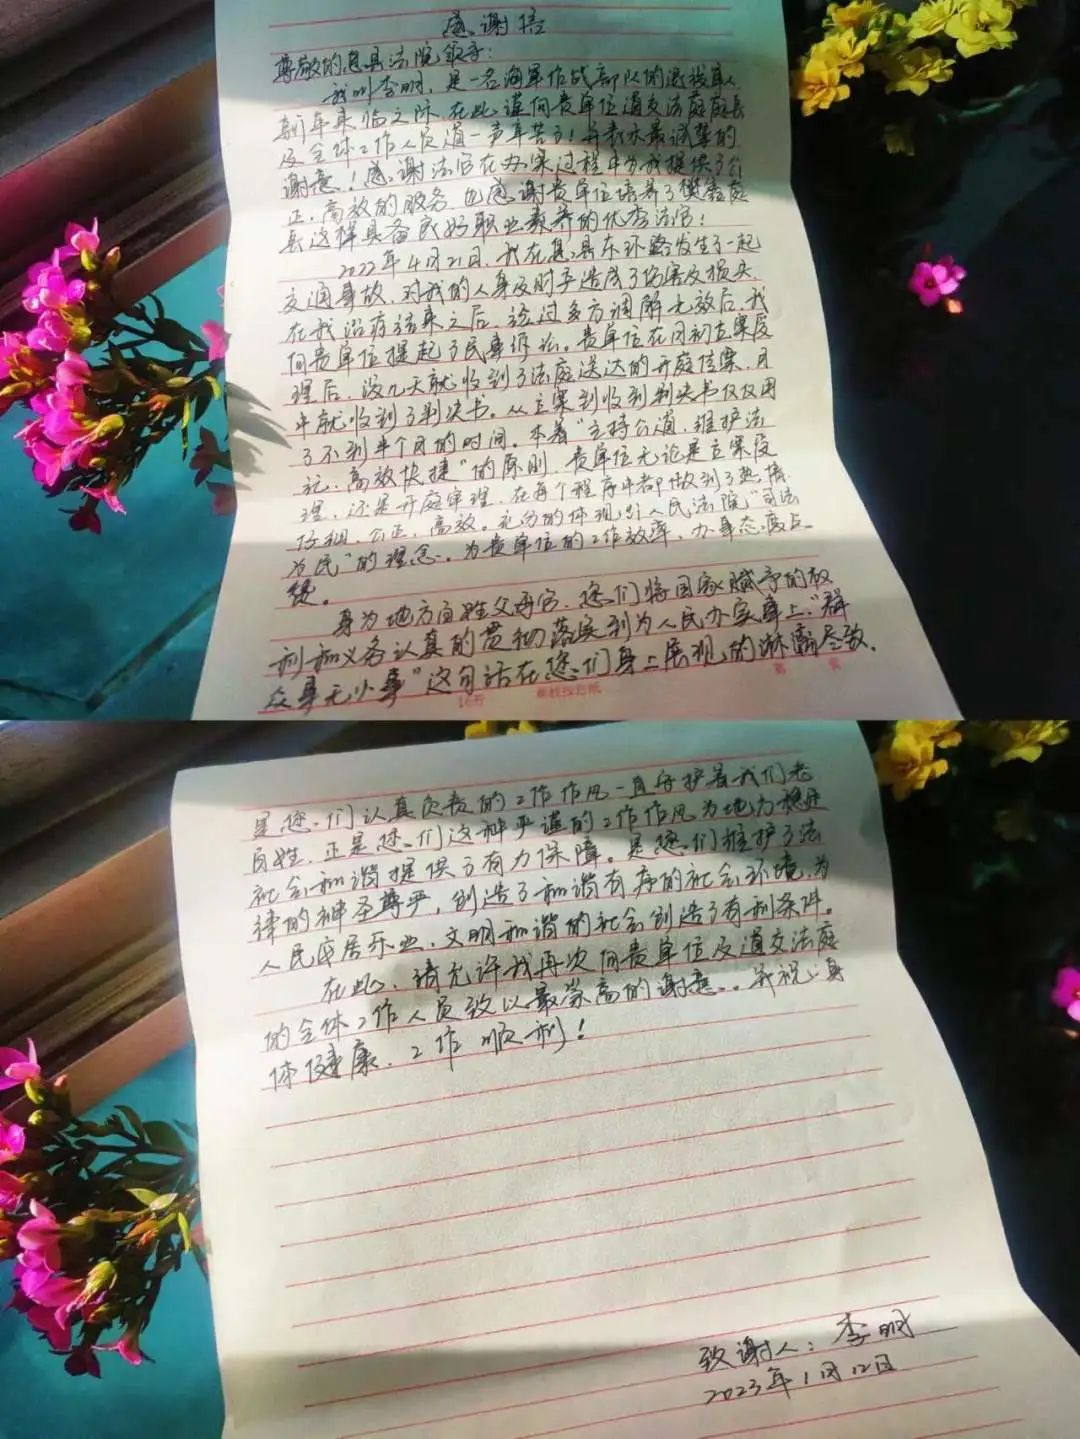 感谢信
尊敬的息县法院领导：
我叫李明，是一名海军作战部队的退役军人
新年来临之际，在此谨向贵单位道交法庭庭长
及全体工作人员道一声辛苦了！并表示最诚挚的
谢意！感谢法官在办案过程中为我提供了公
正、高效的服务，也感谢贵单位培养了樊鑫庭
长这样具备良好职业素养的优秀法官！
2022年4月21日，我在息县东环路发生了一起
交通事故，对我的人身及财产造成了伤害及损失，
在我治疗结束之后，经过多方调解无效后，我
向贵单位提起了民事诉讼。贵单位在月初立案受
理后，没几天就收到了法庭送达的开庭传票，月
中就收到了判决书。从立案到收到判决书仅仅用
了不到半个月的时间。本着“主持公道，维护法
纪，高效快捷”的原则，贵单位无论是立案受
理，还是开庭审理，在每个程序中都做到了热情、
仔细、公正、高效。充分的体现出人民法院“司法
为民”的理念。为贵单位的工作效率，办事态度点
赞。
身为地方百姓父母官，您们将国家赋予的权
利和义务认真的贯彻落实到为人民办实事上，“群
众事无小事”这句话在您们身上展现的淋漓尽致。
是您们认真负责的工作作风一直守护着我们老
百姓，正是您们这种严谨的工作作风为地方稳定
社会和谐提供了有力保障。是您们维护了法
律的神圣尊严，创造了和谐有序的社会环境，为
人民安居乐业、文明和谐的社会创造了有利条件。
在此，请允许我再次向贵单位及道交法庭
的全体工作人员致以最崇高的谢意。并祝：身
体健康，工作顺利！
致谢人：李明
2023年1月12日